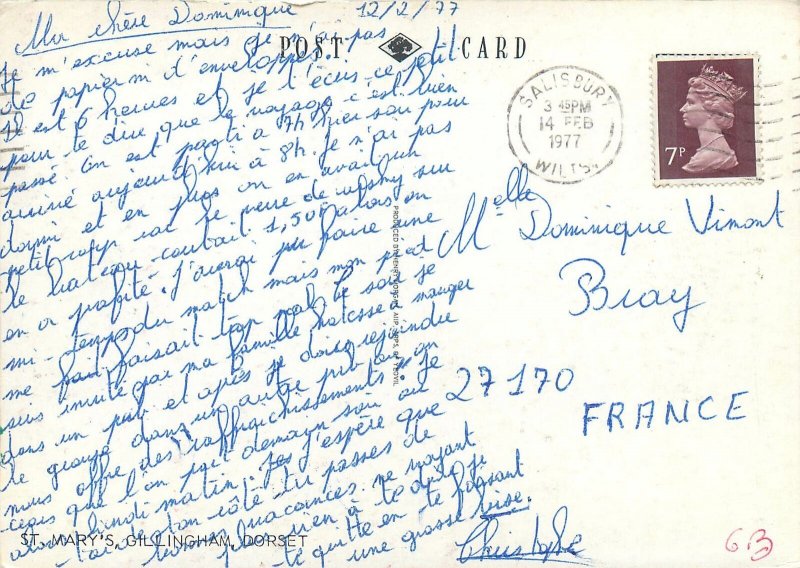 12/2/77
Ma chère Dominique
Je m'excuse mais je n'ai pas
de papier ni d'enveloppe.
Il est 6 heures et je t'écris ce petit
pour te dire que le voyage c'est bien
passé. On est parti à 7h hier soir pour
arriver aujourd'hui à 8h. Je n'ai pas
dormi et en plus on en avait un
petit car le verre de wisky sur
le bateau coutait 1,50F alors on
en a profité. J'aurai pu faire une
mi-temps du match mais mon pied
me faisait trop mal. Ce soir je
suis invité par ma famille manger
dans un pub et après je dois rejoindre
le groupe dans un autre pub où on
nous offre des "raffraichissements". Je
crois que l'on part demain soir ou
lundi matin. J'espère que
ton côté tu passes de
bonnes vacances. ne voyant
plus rien à te dire je
te quitte en te faisant
une grosse bise.
Christophe
POST CARD
SALISBURY
3 45PM
14 FEB
1977
WILTS.
7P
Melle Dominique Vimont
Bray
27170
FRANCE
ST. MARY'S, GILLINGHAM, DORSET
63